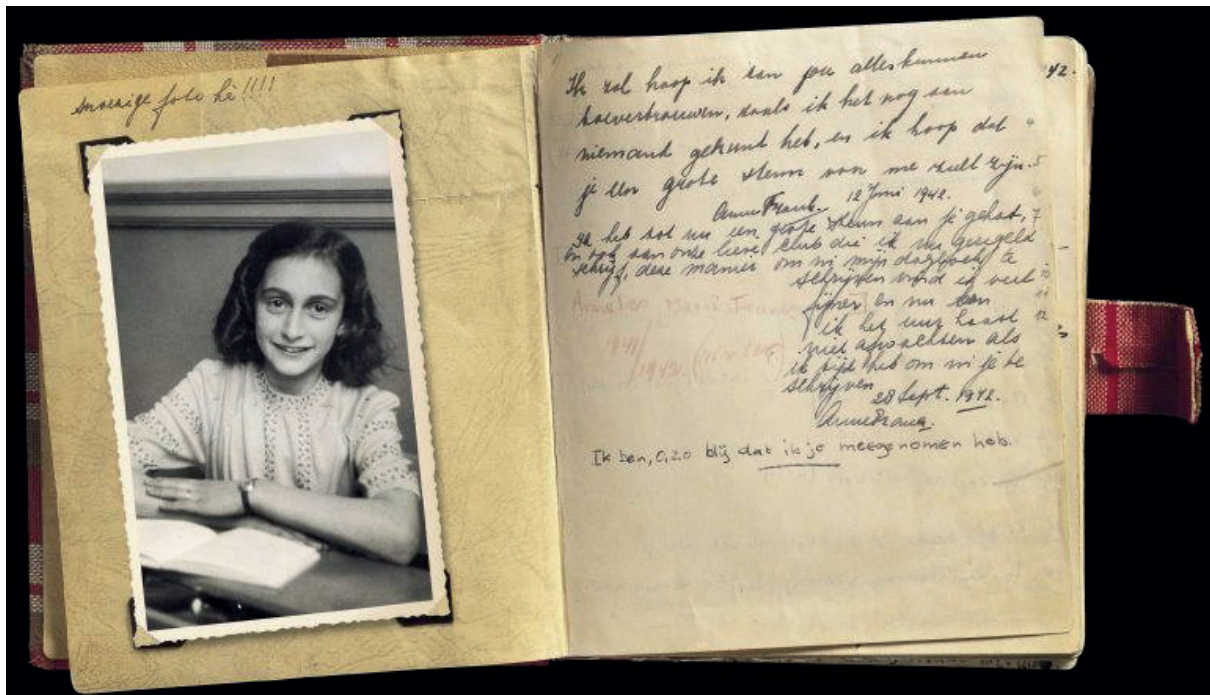 snoezige foto hè!!!!
Ik zal hoop ik aan jou alles kunnen
42.
toevertrouwen, zoals ik het nog aan
niemand gekund heb, en ik hoop dat
je een grote steun voor me zult zijn.
Anne Frank. 12 Juni 1942.
Ik heb tot nu een grote steun aan je gehad,
en ook aan onze lieve club die ik nu geregeld
schrijf, deze manier om in mijn dagboek te
schrijven vind ik veel
fijner en nu kan
ik het uur haast
niet afwachten als
ik tijd heb om in je te
schrijven
28 Sept. 1942.
Anne Frank.
Annelies Marie Frank
1941/
/1942
Ik ben, O, zo blij dat ik je meegenomen heb.